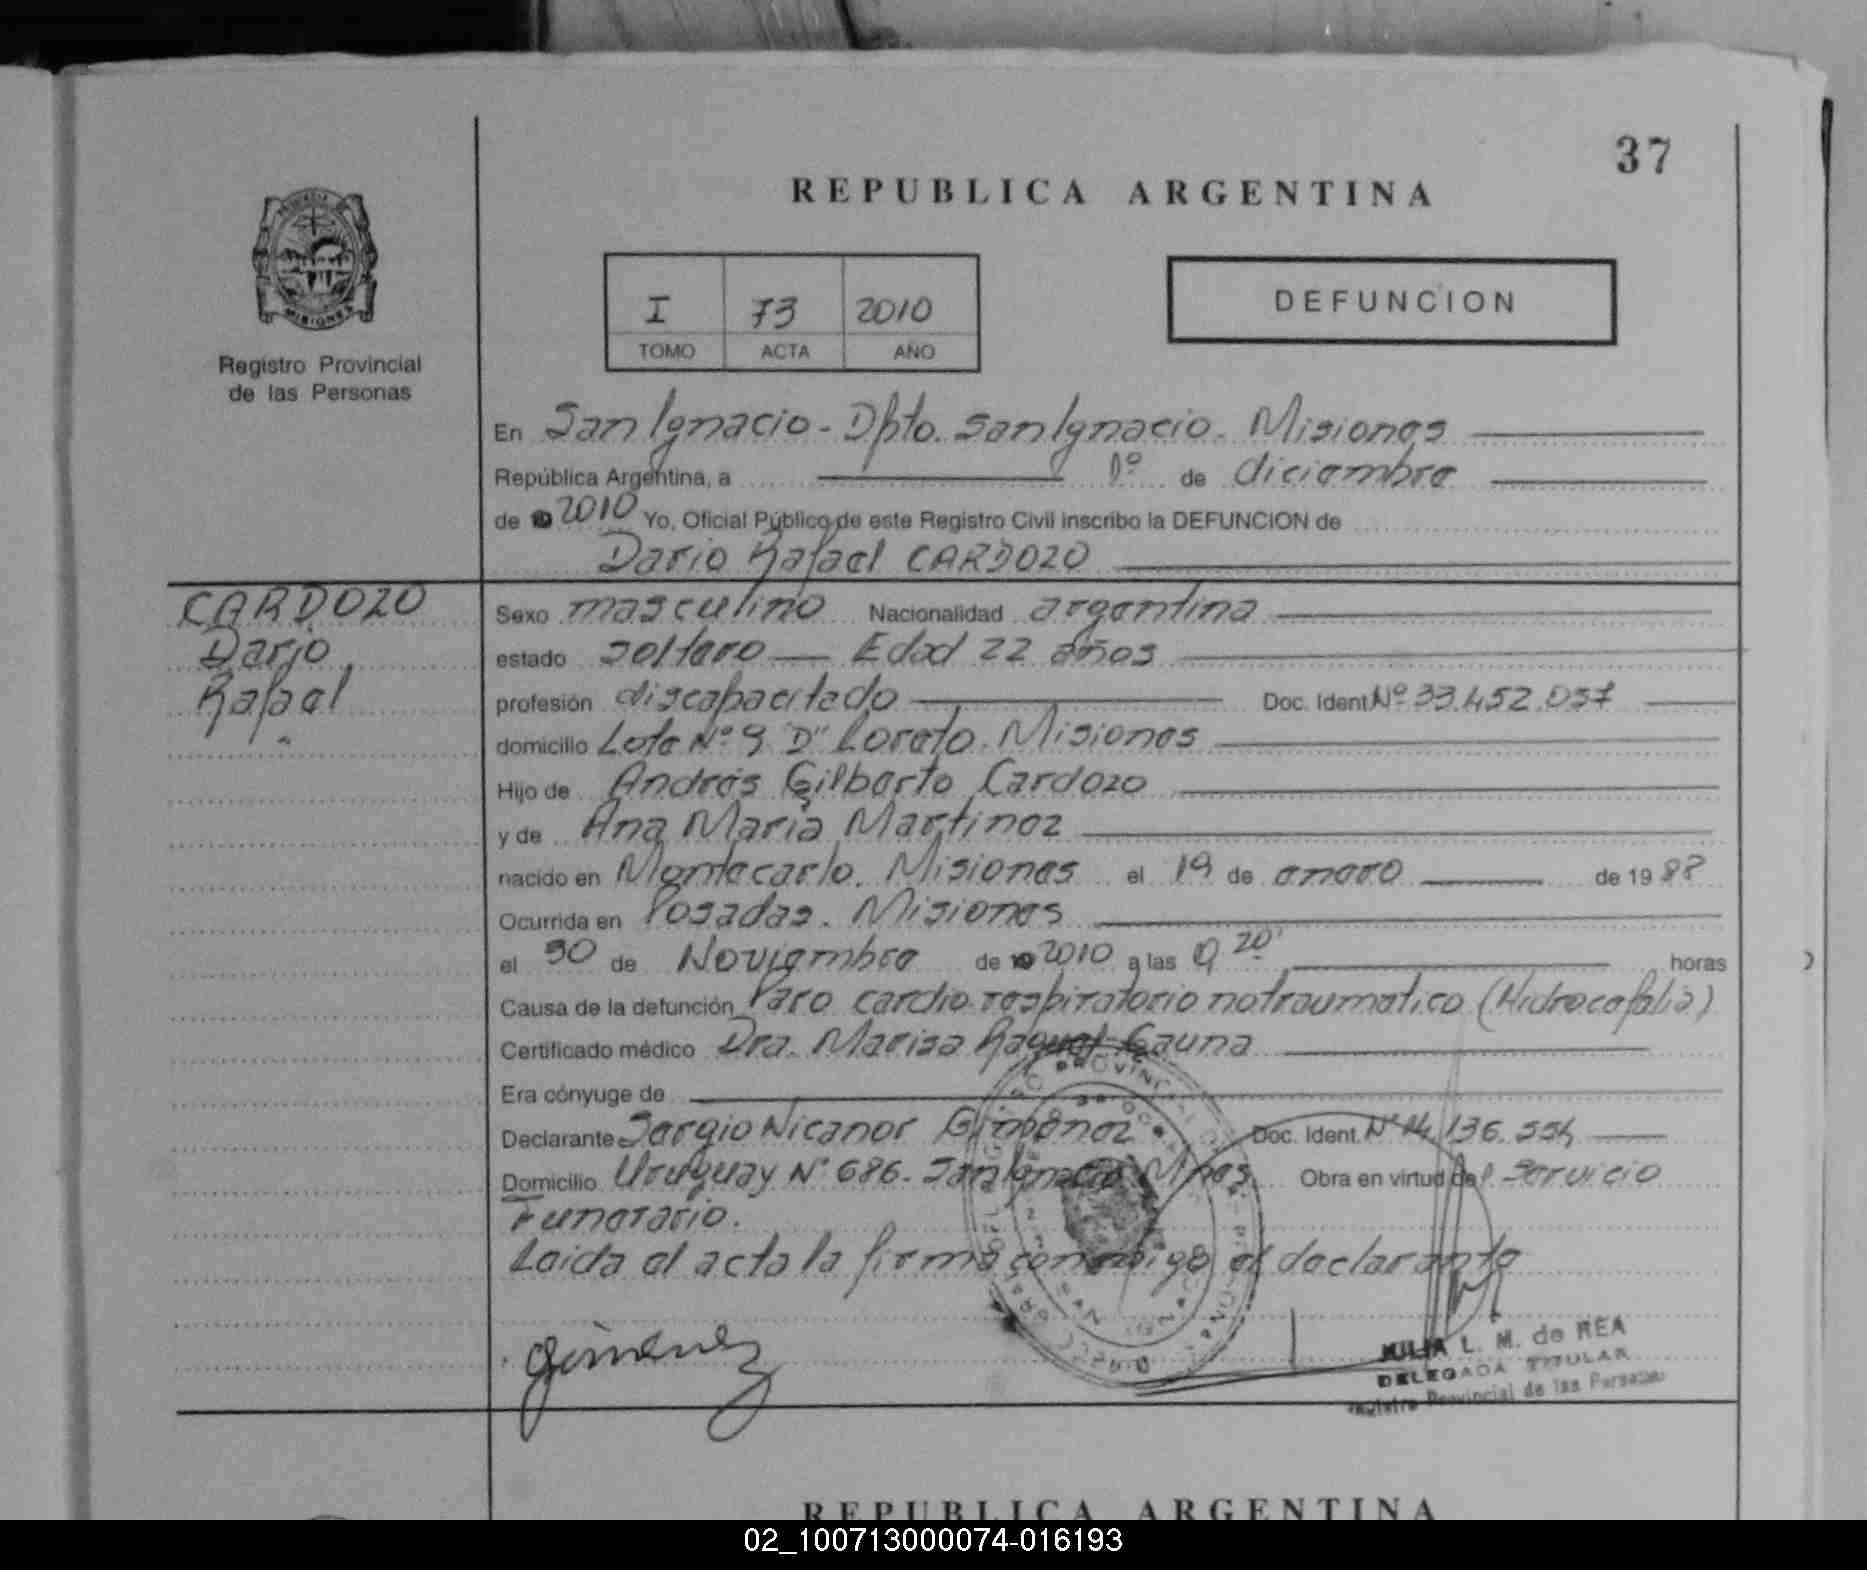 37
REPUBLICA ARGENTINA
PROVINCIA
MISIONES
Registro Provincial
de las Personas
I 73 2010
TOMO ACTA AÑO
DEFUNCION
En San Ignacio - Dpto. San Ignacio. Misiones
República Argentina, a 1º de diciembre
de 2010 Yo, Oficial Público de este Registro Civil inscribo la DEFUNCION de
Dario Rafael CARDOZO
CARDOZO
Dario
Rafael
Sexo masculino Nacionalidad argentina
estado soltero — Edad 22 años
profesión discapacitado Doc. Ident. Nº 33.452.037
domicilio Lote Nº 9 "D" Loreto. Misiones
Hijo de Andrés Gilberto Cardozo
y de Ana Maria Martinez
nacido en Montecarlo. Misiones el 19 de enero de 1988
Ocurrida en Posadas. Misiones
el 30 de Noviembre de 2010 a las 20' horas
Causa de la defunción Paro cardio-respiratorio no traumatico (Hidrocefalia)
Certificado médico Dra. Marisa Raquel Gauna
Era cónyuge de
Declarante Sergio Nicanor Gimenez Doc. Ident. Nº 14.136.554
Domicilio Uruguay Nº 686 - San Ignacio Mnes. Obra en virtud del servicio
Funerario.
Leida el acta la firma conmigo el declarante
Gimenez
JULIA L. M. de REA
DELEGADA TITULAR
Registro Provincial de las Personas
REPUBLICA ARGENTINA
02_100713000074-016193